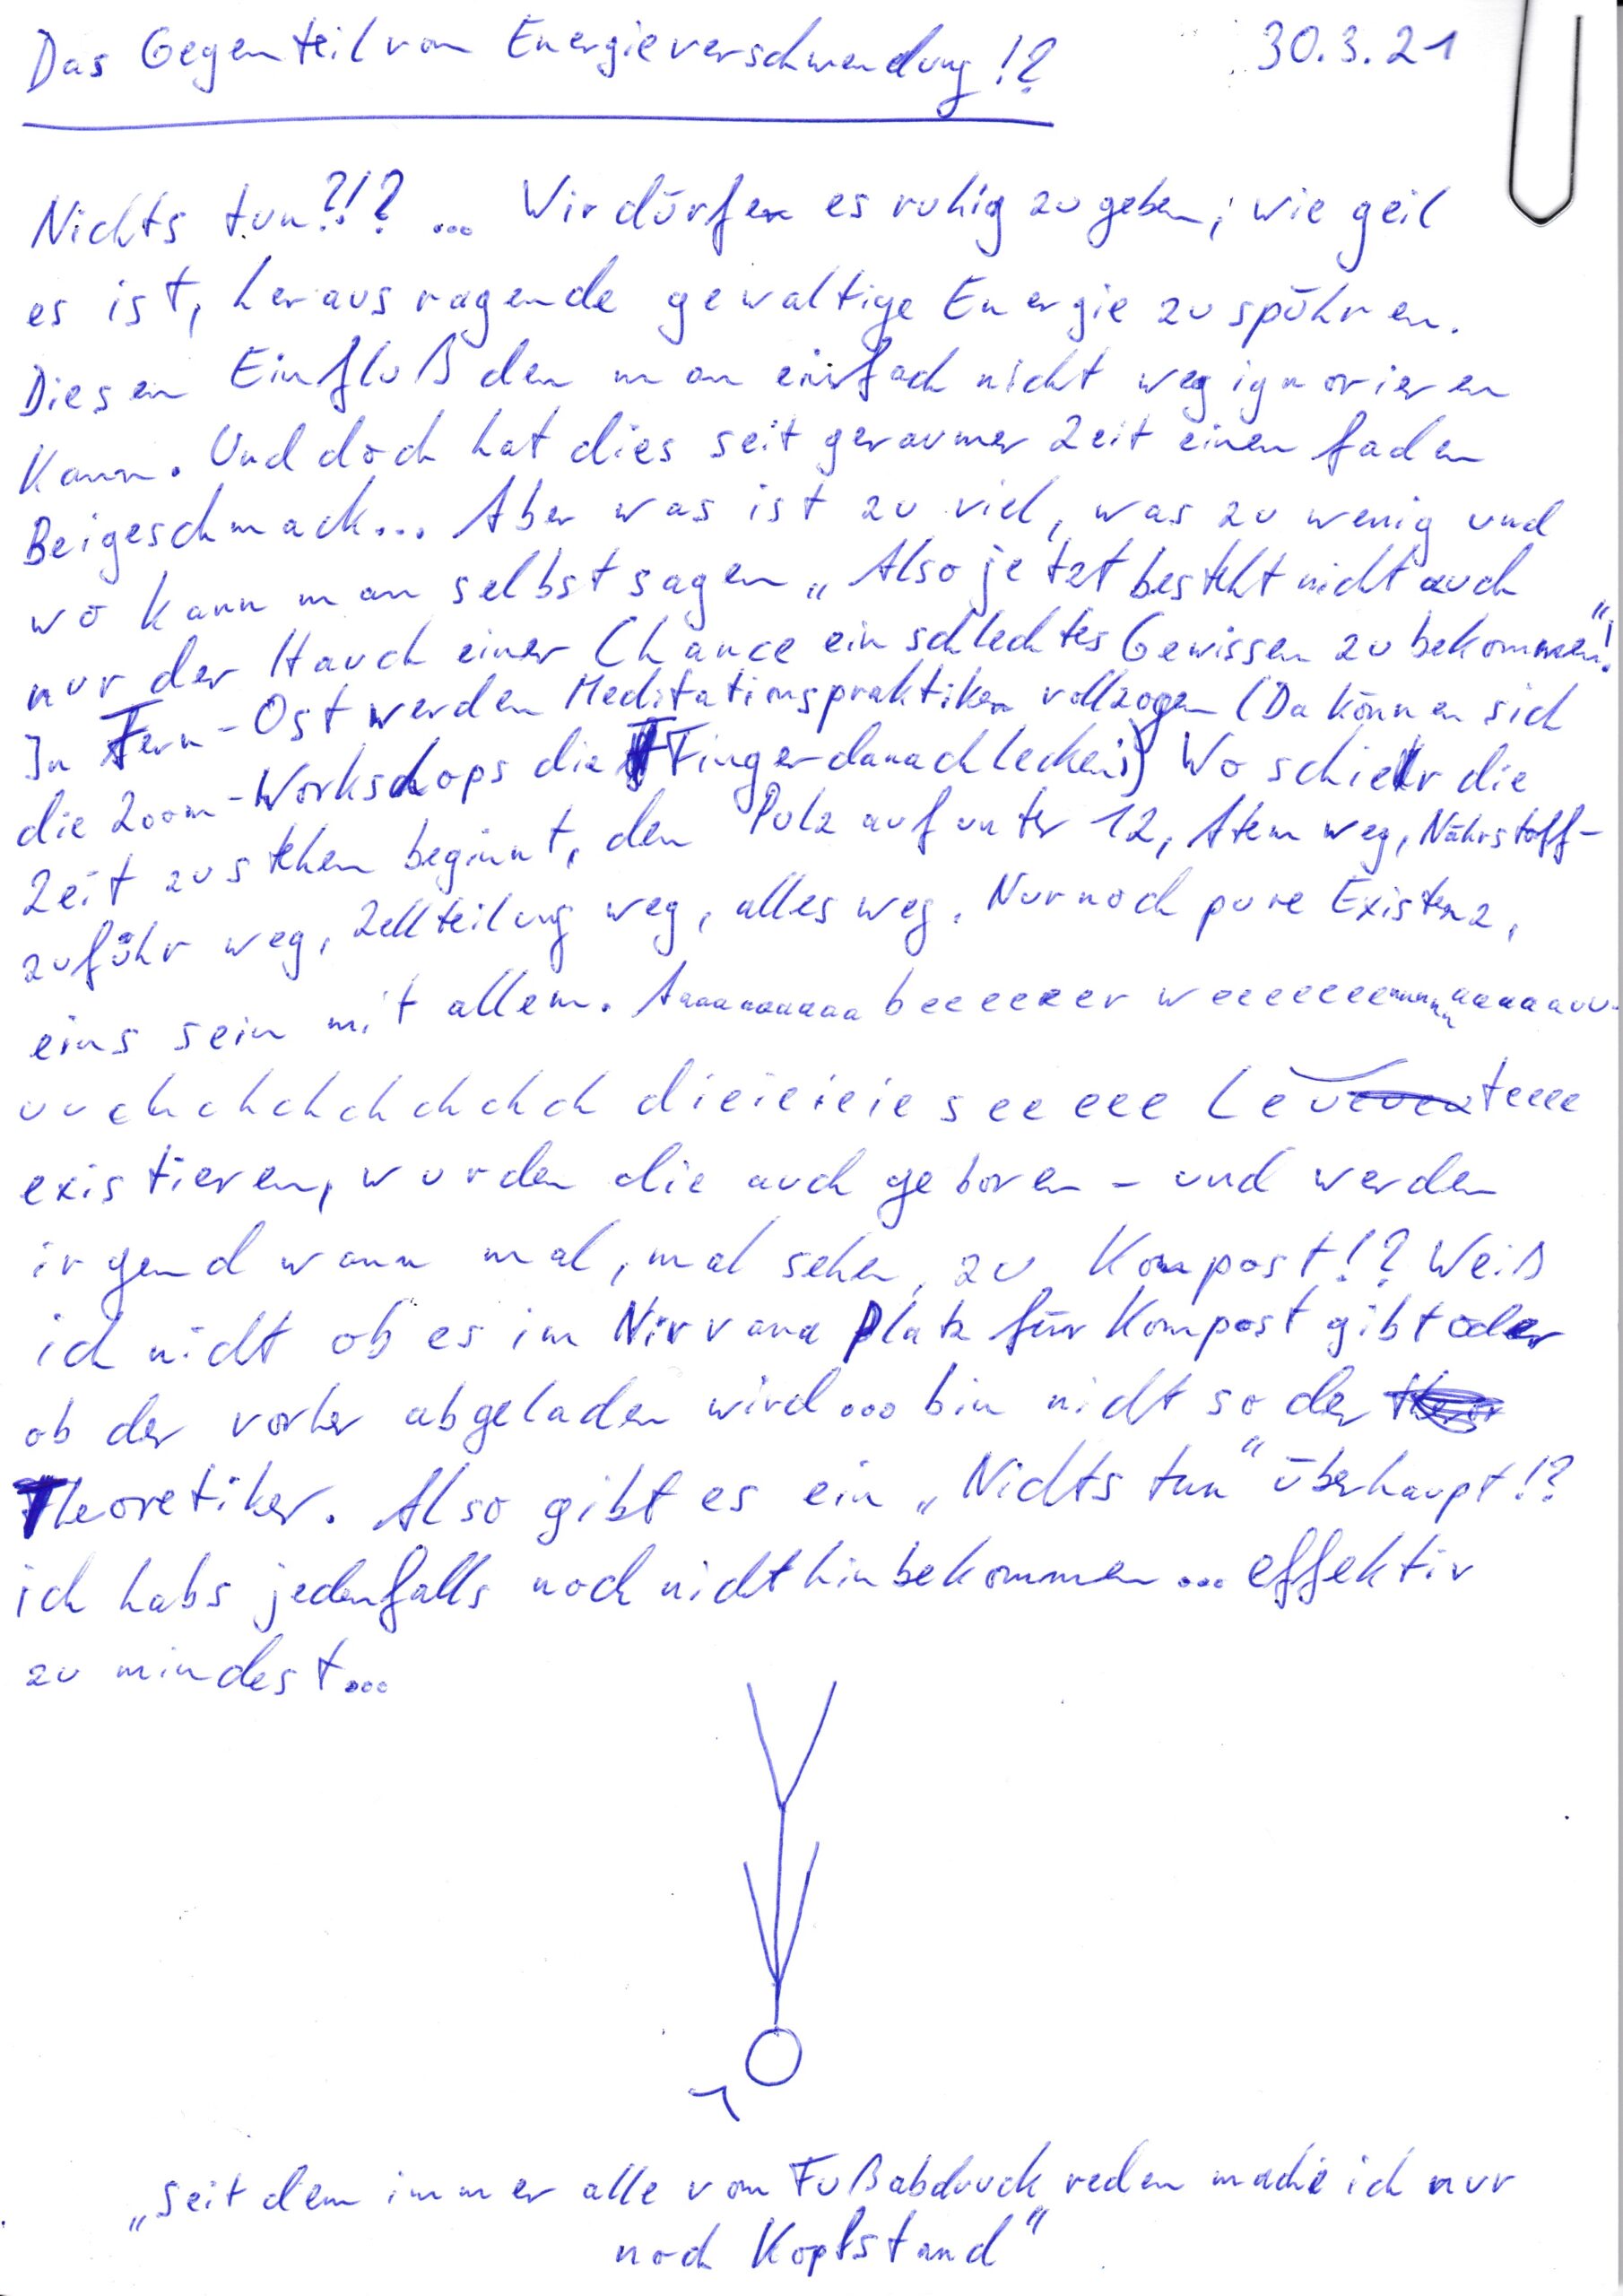 Das Gegenteil von Energieverschwendung!? 30.3.21
Nichts tun?!? ... Wir dürfen es ruhig zugeben, wie geil
es ist, herausragende gewaltige Energie zu spühren.
Diesen Einfluß den man einfach nicht weg ignorieren
kann. Und doch hat dies seit geraumer Zeit einen faden
Beigeschmack... Aber was ist zu viel, was zu wenig und
wo kann man selbst sagen „Also jetzt besteht nicht auch
nur der Hauch einer Chance ein schlechtes Gewissen zu bekommen"!
In Fern-Ost werden Meditationspraktiken vollzogen (Da können sich
die Zoom-Workshops die Finger danach lecken;) Wo schier die
Zeit zu stehen beginnt, den Pulz auf unter 12, Atem weg, Nährstoff-
zuführ weg, Zellteilung weg, alles weg. Nur noch pure Existenz,
eins sein mit allem. Aaaaaaaaaa beeeeeer weeeeeeennnnn aaaaauu-
uuchchchchchchch dieieieieseeeee Leuteeee
existieren, wurden die auch geboren - und werden
irgendwann mal, mal sehen, zu Kompost!? Weiß
ich nicht ob es im Nirvana Platz für Kompost gibt oder
ob der vorher abgeladen wird... bin nicht so der
Theoretiker. Also gibt es ein „Nichts tun" überhaupt!?
ich habs jedenfalls noch nicht hinbekommen... effektiv
zu mindest...
„Seit dem immer alle vom Fußabdruck reden mache ich nur
noch Kopfstand"